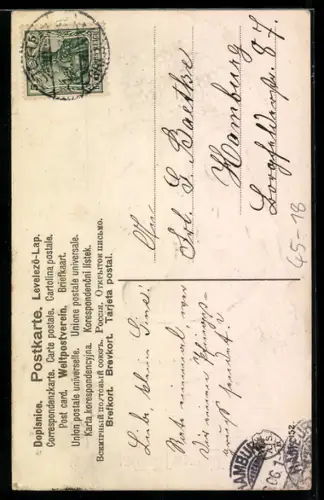 Dopisnice. Postkarte. Levelező-Lap.
Correspondenzkarte. Carte postale. Cartolina postale.
Post card. Weltpostverein. Briefkaart.
Union postale universelle. Unione postale universale.
Karta korespondencyjna. Korespondenční lístek.
Всемирный почтовый союзъ. Россiя. Открытое письмо.
Brefkort. Brevkort. Tarjeta postal.
An
Frl. G. Baethe
Hamburg
Borgfelderstr. 87.
45-18
Liebe kleine Gusti!
Rate einmal, wer
Dir einen Pfingst-
gruß sendet?
HAMBURG